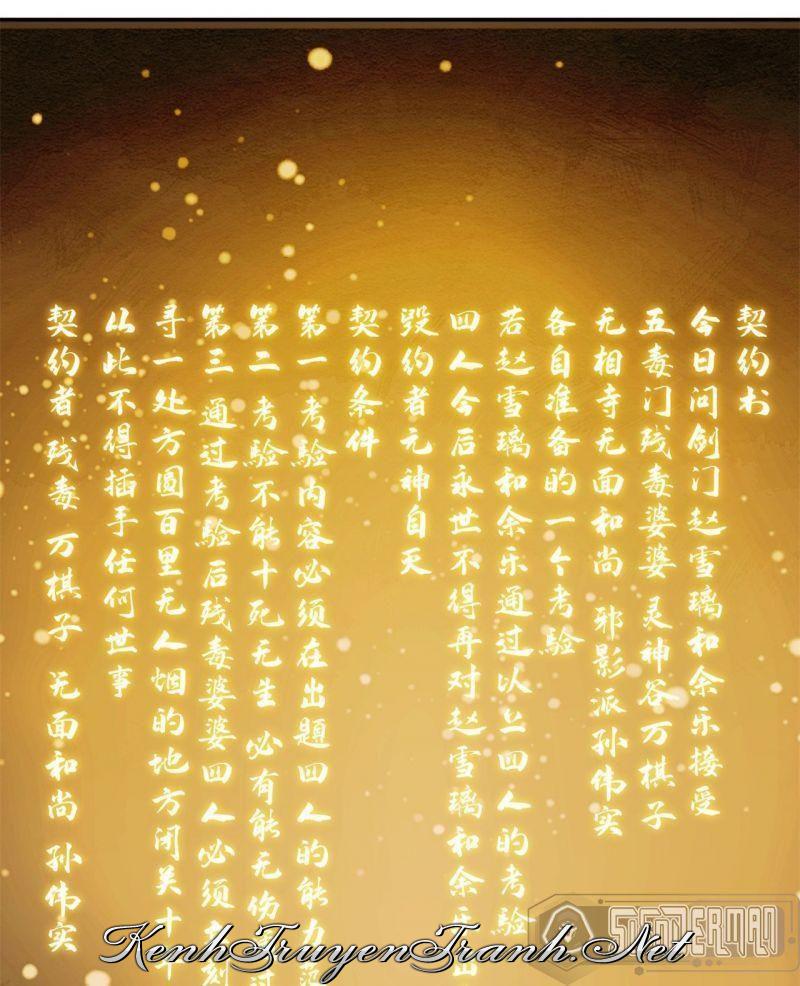 契约书
今日问剑门赵雪璃和余乐接受
五毒门残毒婆婆 灵神谷万棋子
无相寺无面和尚 邪影派孙伟实
各自准备的一个考验
若赵雪璃和余乐通过以上四人的考验
四人今后永世不得再对赵雪璃和余乐出
毁约者元神自天
契约条件
第一 考验内容必须在出题四人的能力范
第二 考验不能十死无生 必有能无伤过
第三 通过考验后残毒婆婆四人必须立刻
寻一处方圆百里无人烟的地方闭关十年
从此不得插手任何世事
契约者残毒 万棋子 无面和尚 孙伟实
KenhTruyenTranh.Net